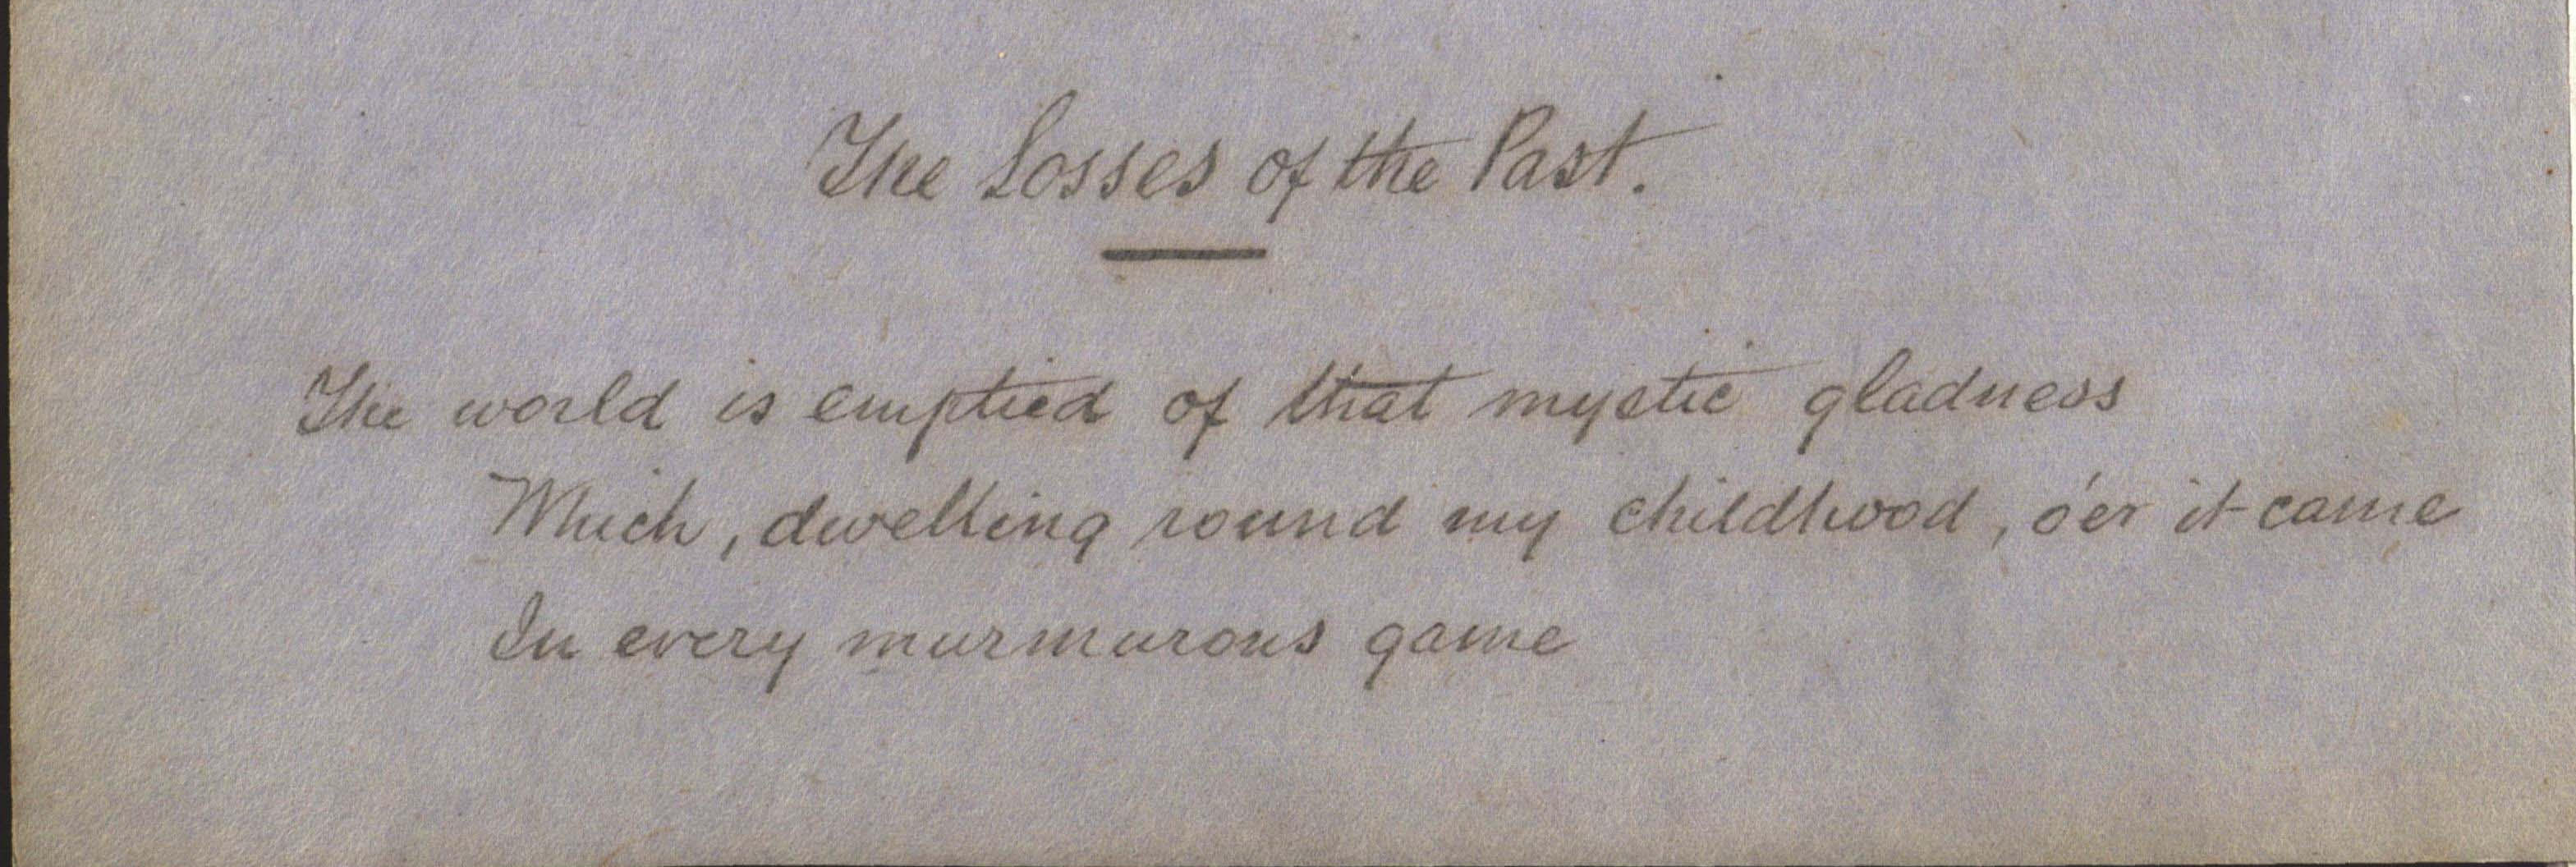 The Losses of the Past.
The world is emptied of that mystic gladness
Which, dwelling round my childhood, o'er it came
In every murmurous game